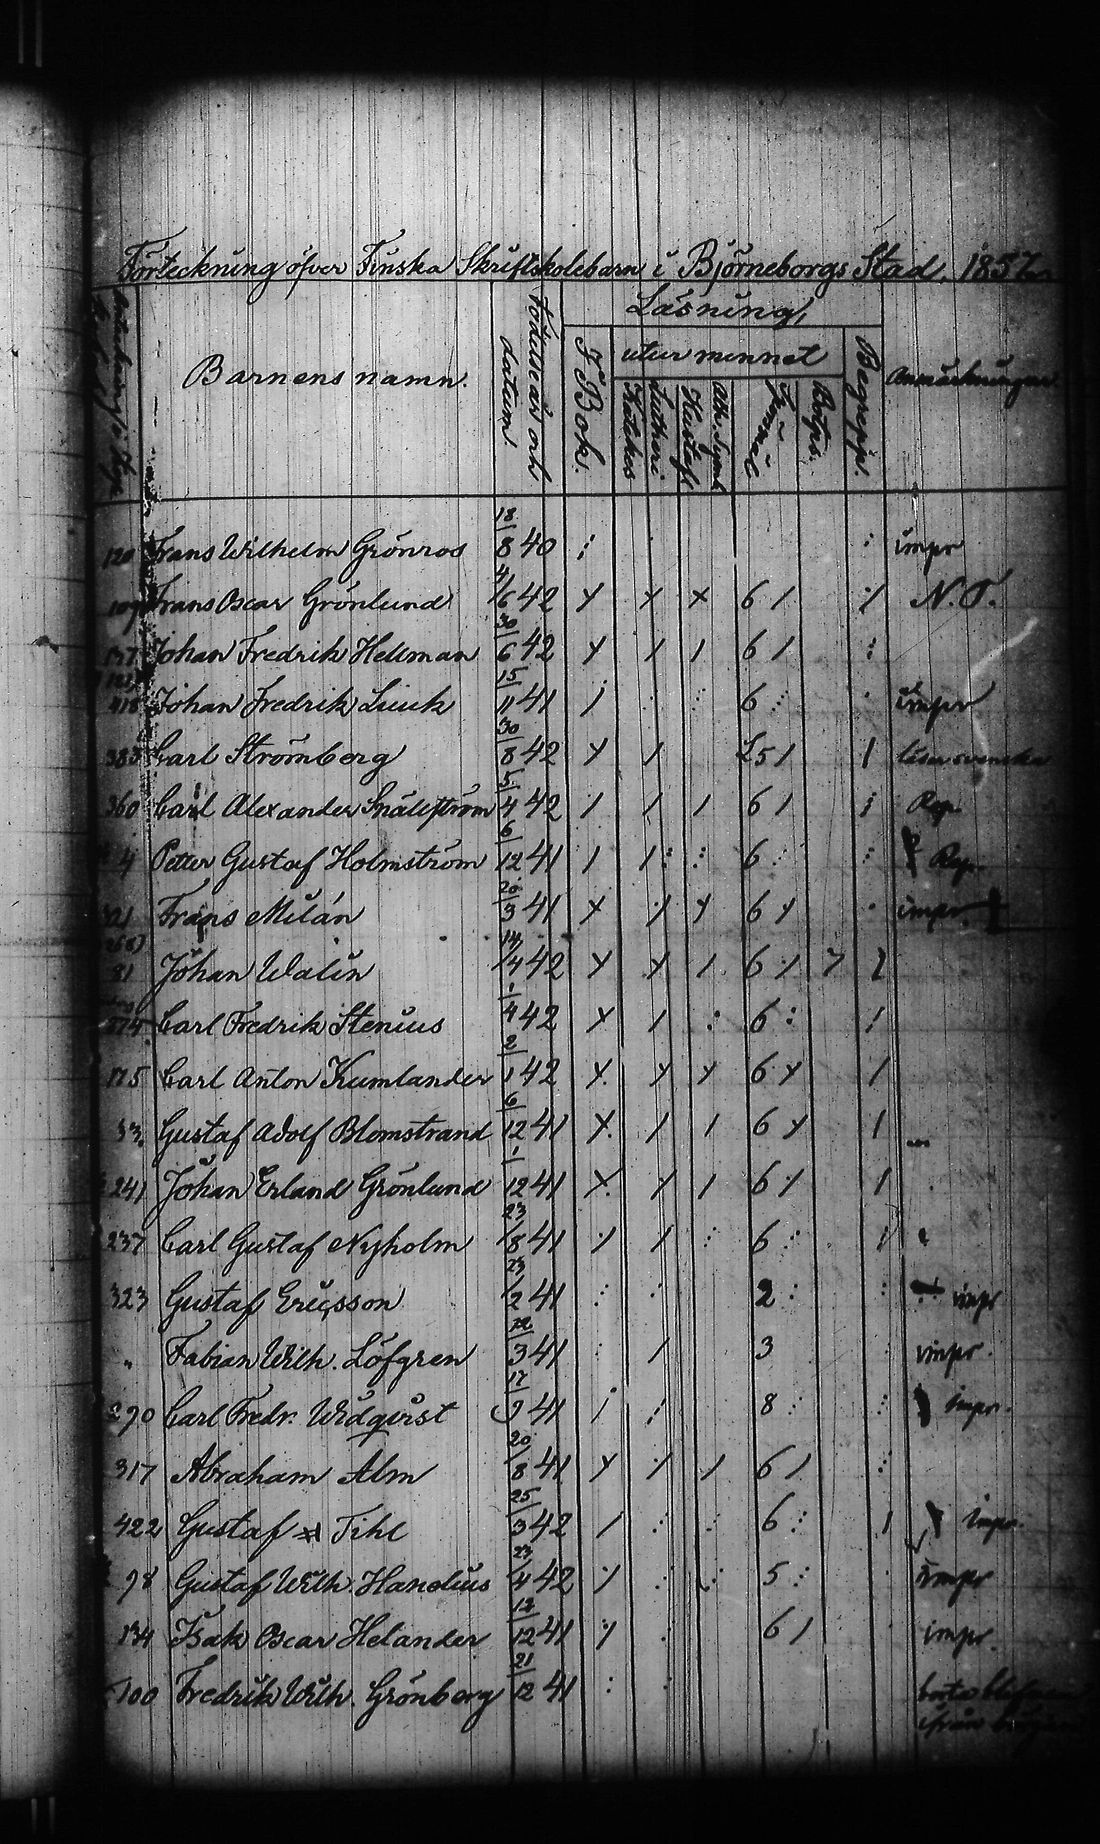 Förteckning öfver Finska Skriftskolebarn i Björneborgs Stad, 1857
Barnens namn.
Födelseår och datum.
Läsning,
I Bok.
utur minnet
Katekes
Lutheri
Hustafl
Ath. Symb
Botps.
Begrepp.
Anmärkningar
120 Frans Wilhelm Grönros 18/8 40 impr
109 Frans Oscar Grönlund 4/6 42 6 / N.T.
137 Johan Fredrik Hellman 30/6 42 6 /
418 Johan Fredrik Liuik 15/11 41 6 impr
383 Carl Strömberg 30/8 42 5 / läser svenska
360 Carl Alexander Snällström 5/4 42 6 / Rep.
4 Petter Gustaf Holmström 6/12 41 6 Rep.
321 Frans Milán 20/3 41 6 impr
81 Johan Walin 14/4 42 6
574 Carl Fredrik Stenius 1/4 42 6
175 Carl Anton Kumlander 2/1 42 6
53. Gustaf Adolf Blomstrand 6/12 41 6
241 Johan Erland Grönlund 1/12 41 6
237 Carl Gustaf Nyholm 23/8 41 6
323 Gustaf Ericsson 23/2 41 2 impr
„ Fabian Wilh. Löfgren 12/3 41 3 impr.
290 Carl Fredr. Widqvist 17/9 41 8 impr.
317 Abraham Alm 20/8 41 6 /
422 Gustaf Tihl 25/3 42 6 impr.
98 Gustaf Wilh. Hanelius 23/4 42 5 impr
134 Isak Oscar Helander 12/12 41 6 / impr.
100 Fredrik Wilh. Grönberg 21/12 41 borta
ifrån